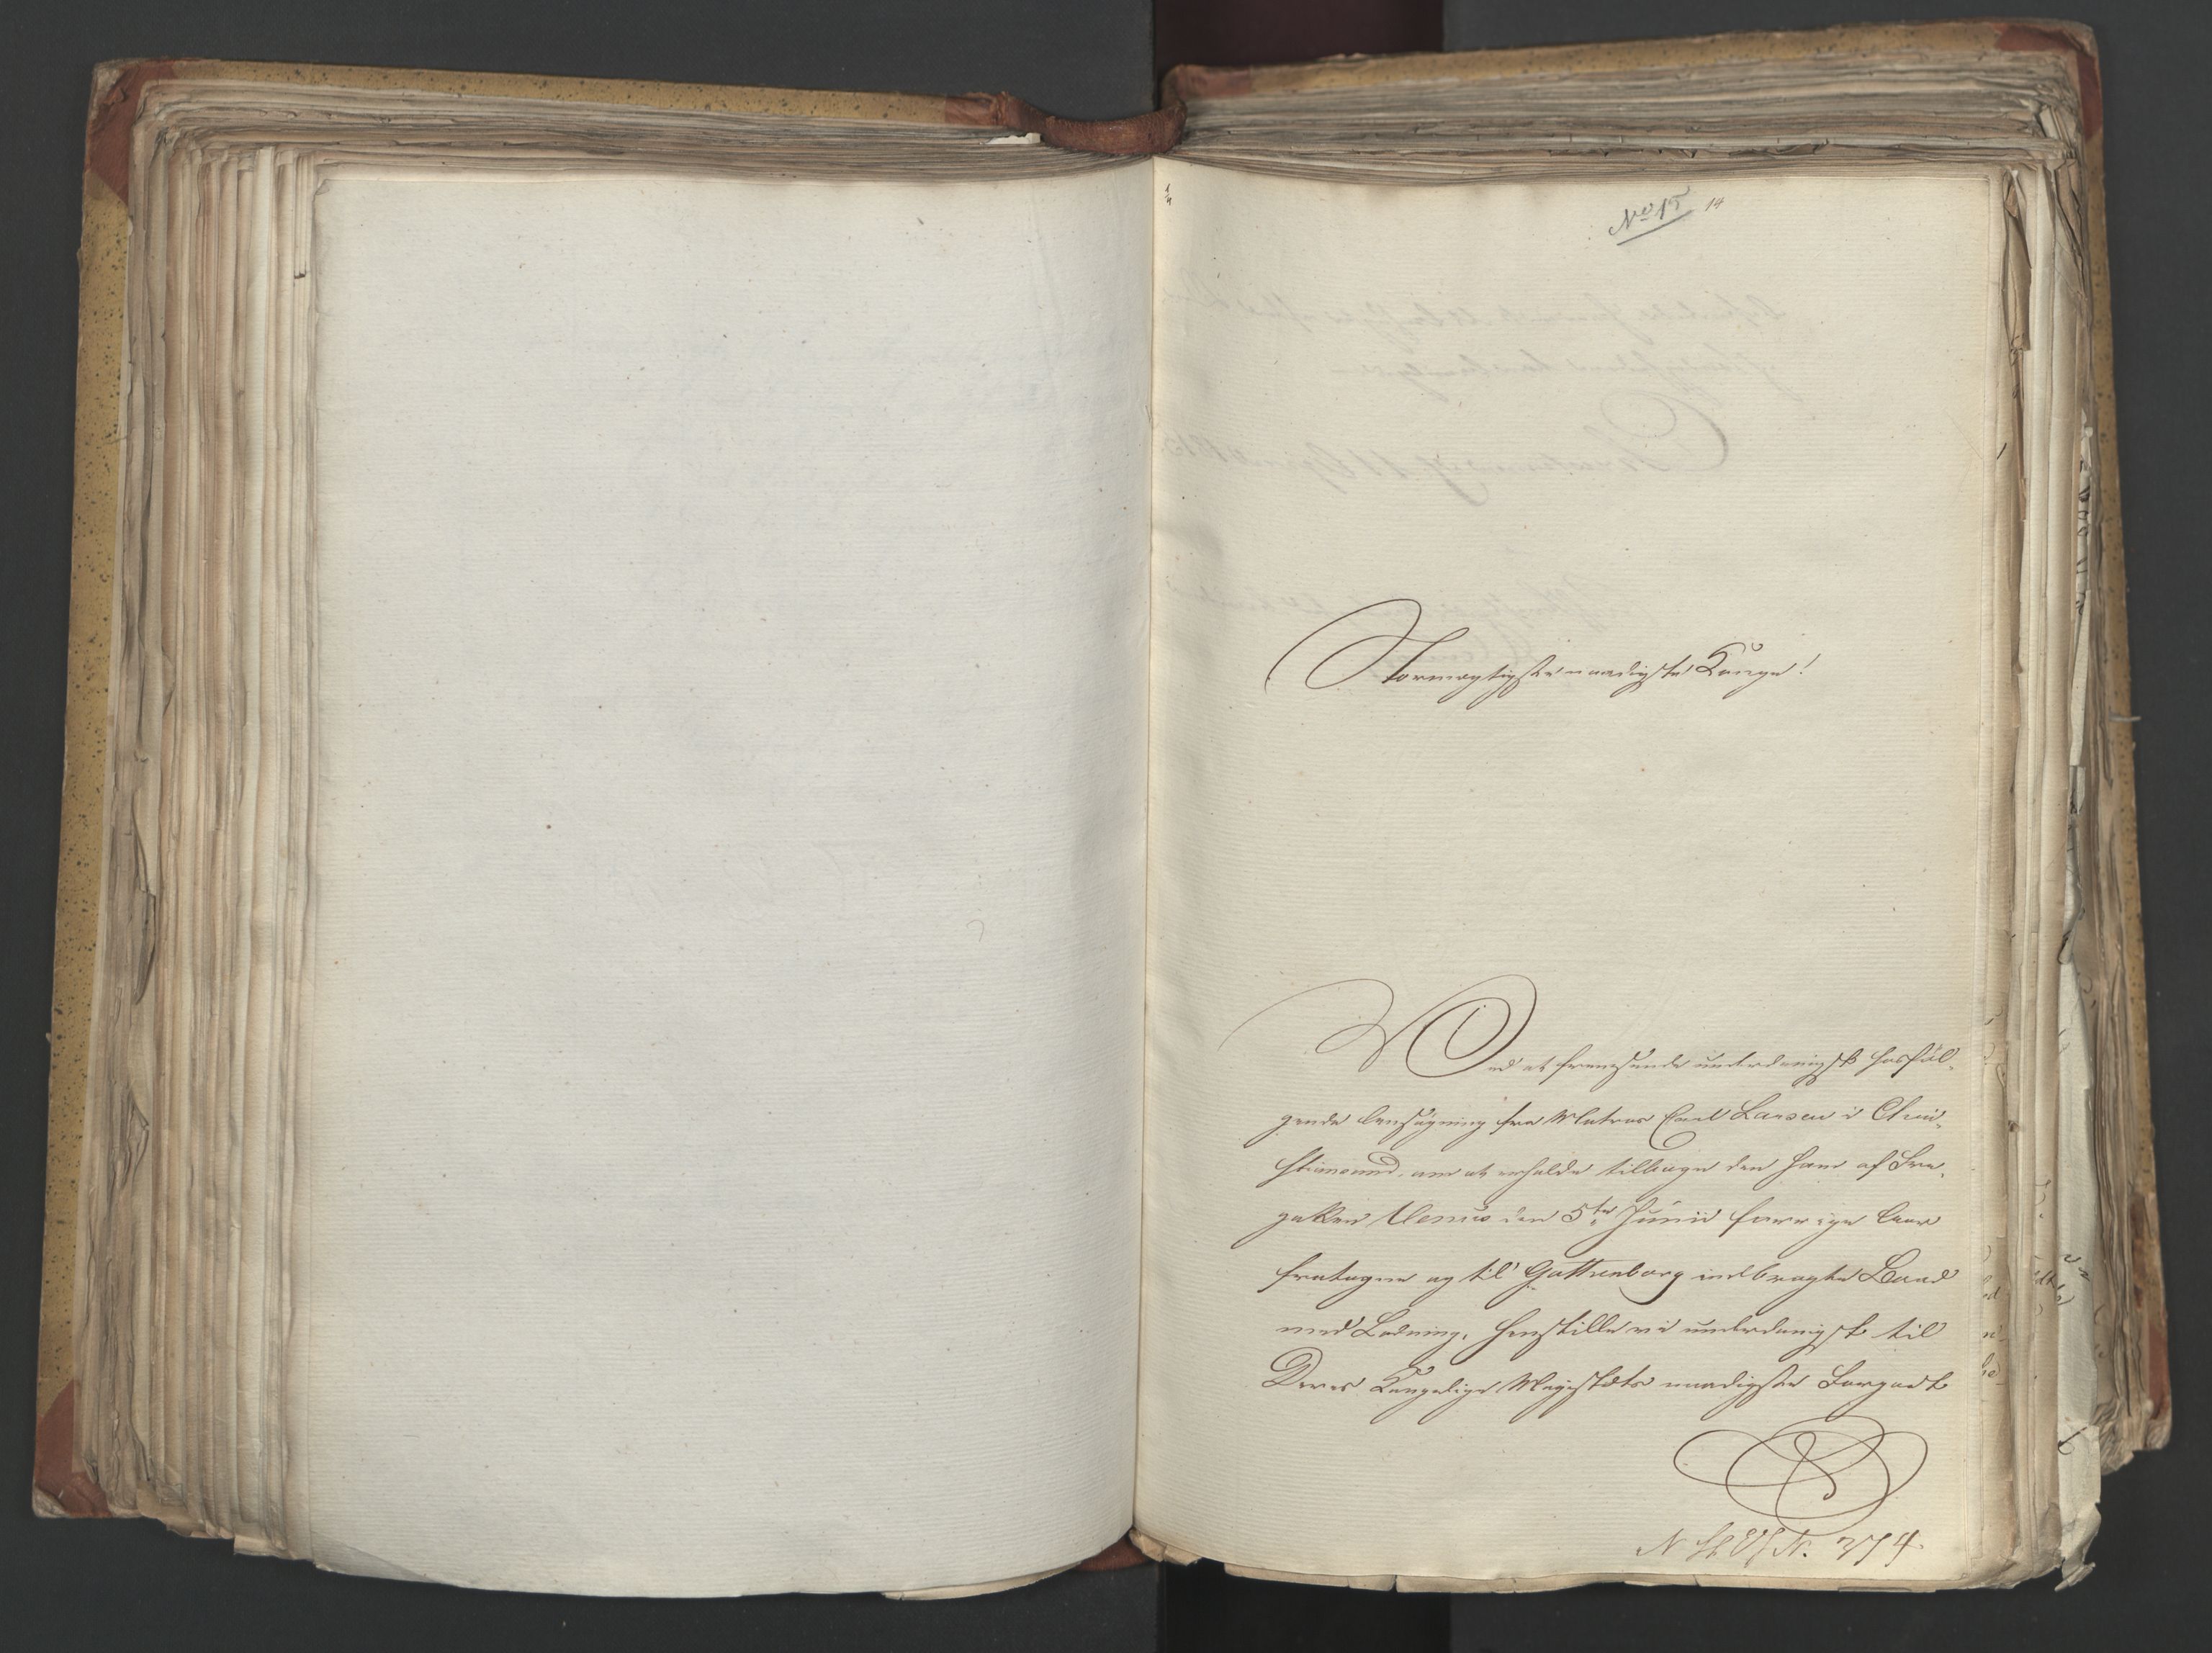 No 15 14
Stormægtigste naadigste Konge!
Ved at fremsende underdanigst hosføl-
gende Ansøgning fra Matros Carl Larsen i Chri-
stiansund, om at erholde tilbage den ham af Fre-
gatten Venus den 5te Junii forrige Aar
fratagne og til Gottenborg indbragte Baad
med Ladning, henstille vi underdanigst til
Deres Kongelige Majestæts naadigste Forgodt-